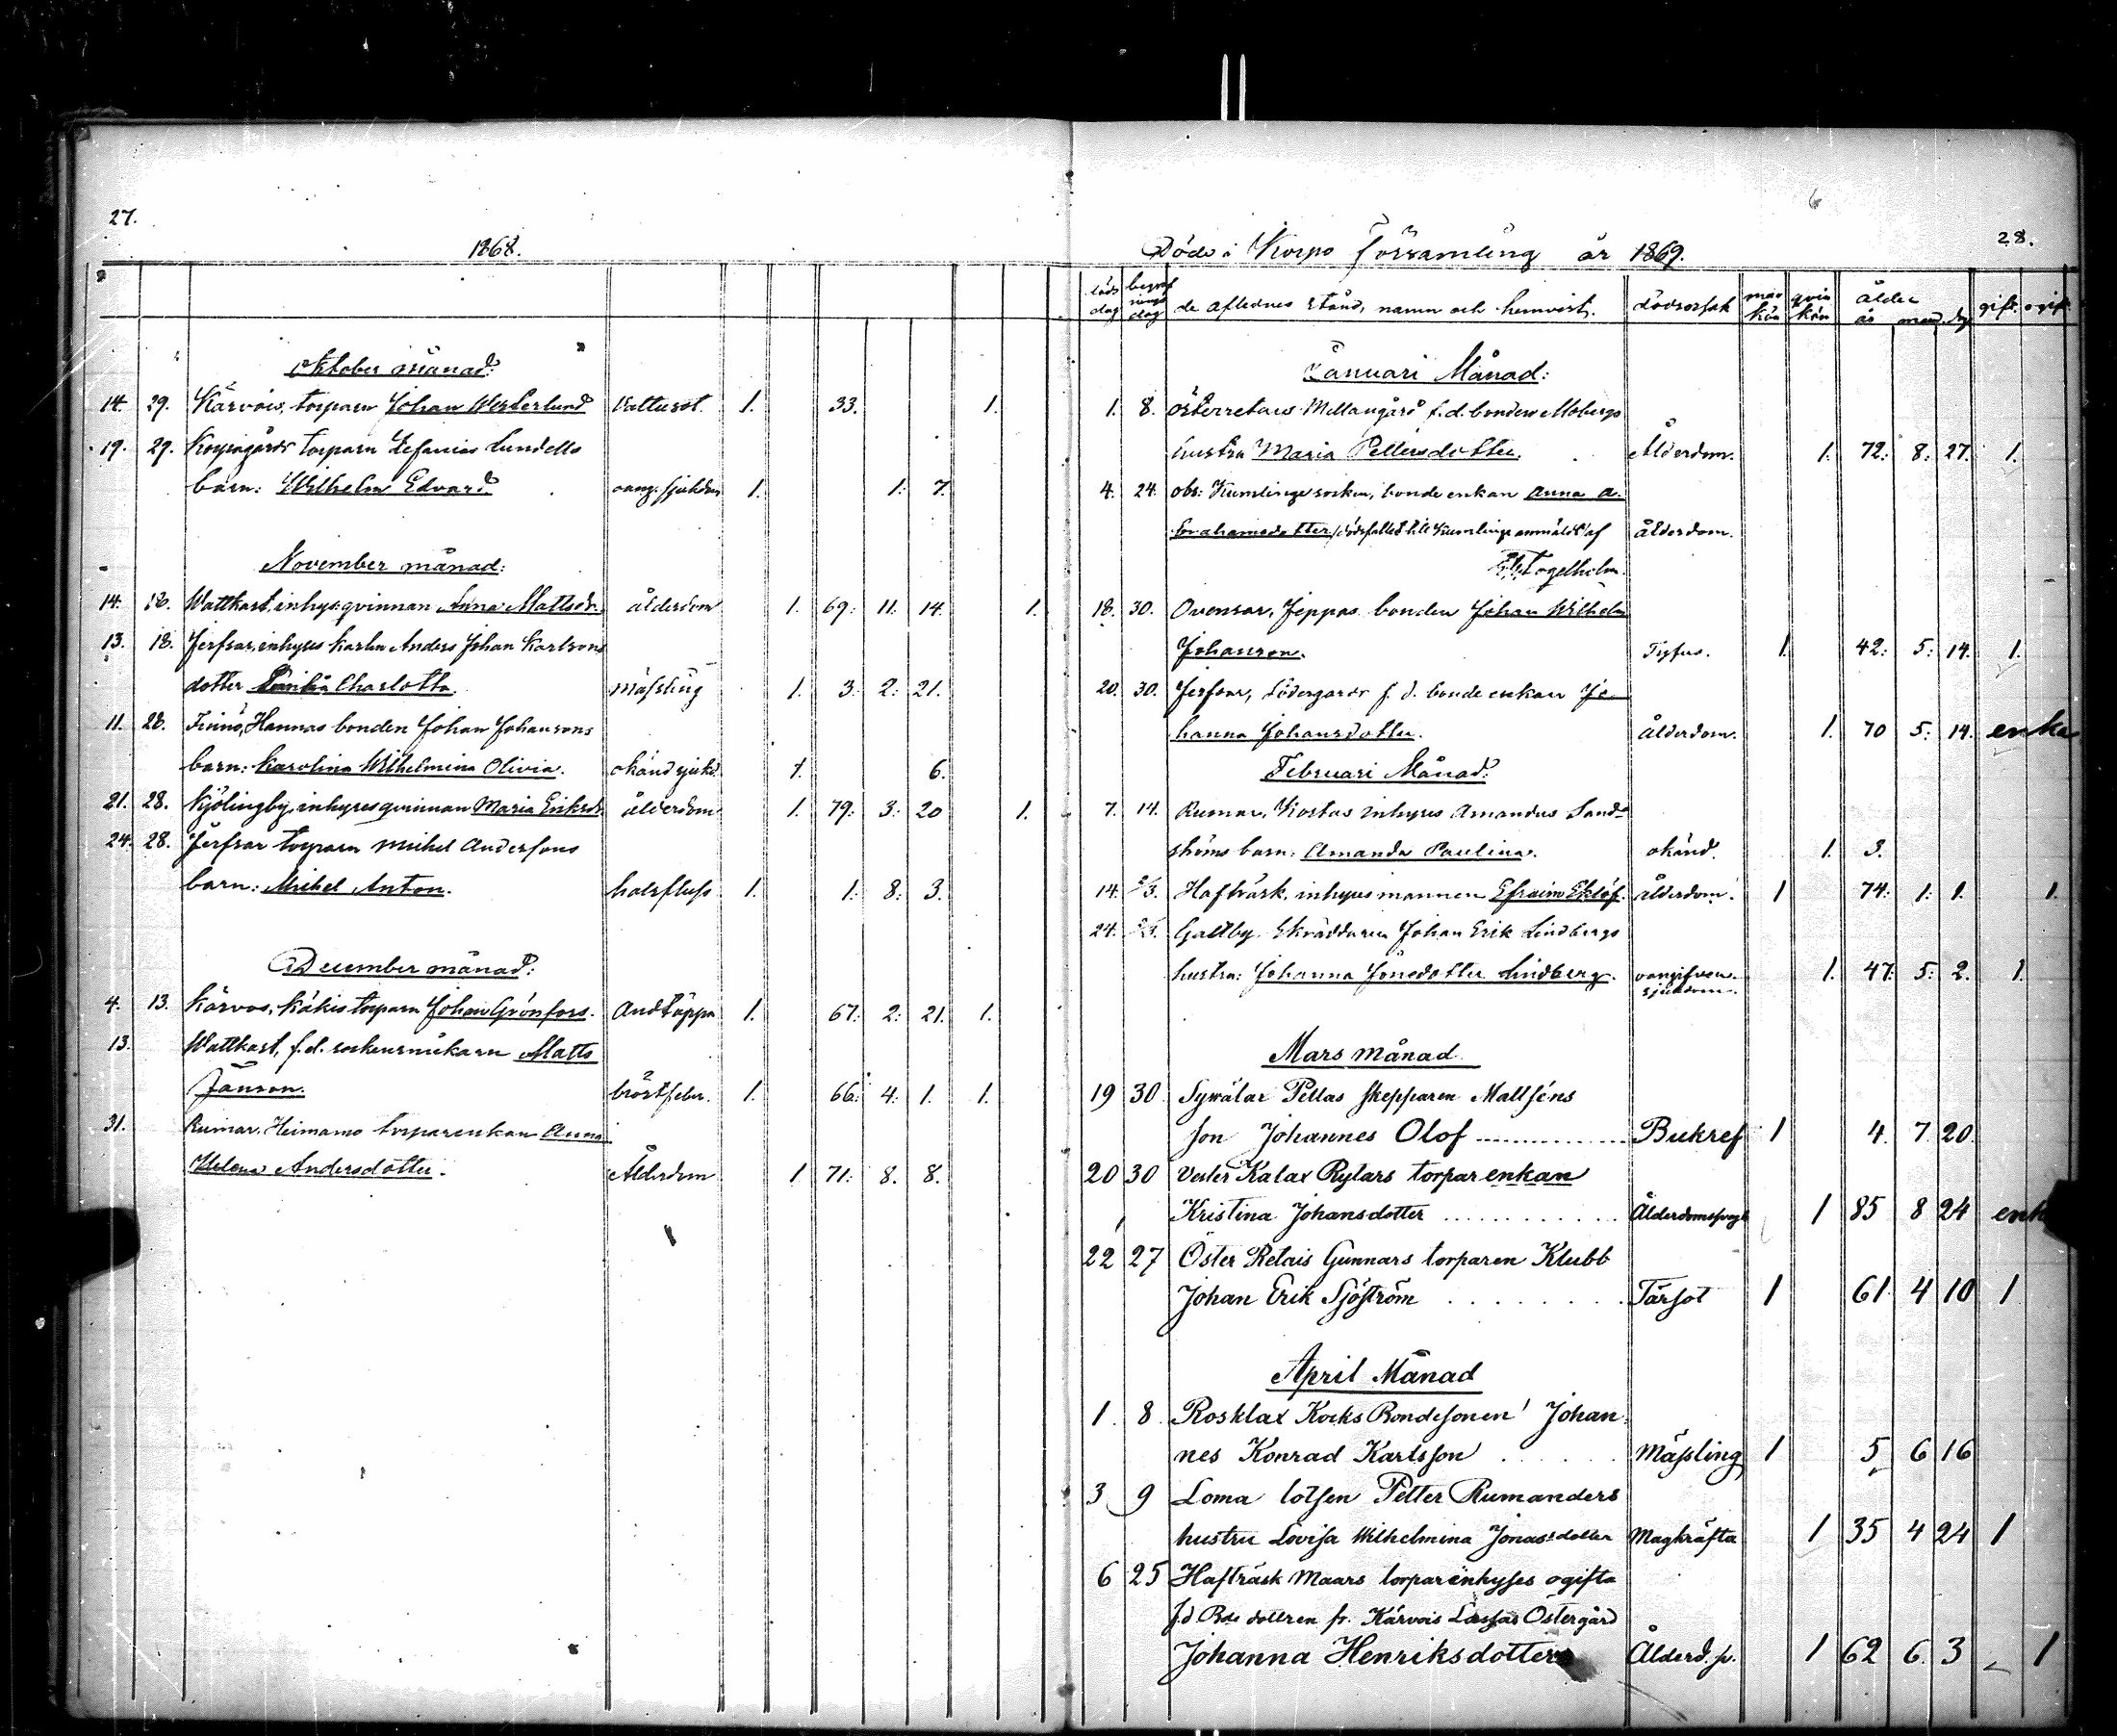 27.
1868.
Oktober månad:
14. 29. Kärvois, torparn Johan Westerlund Vattusot. 1. 33. 1.
19. 29. Korpogårds torparn Lundells
barn: Wilhelm Edvard. oang. sjukdom 1. 1. 7.
November månad:
14. 18. Wattkast, inhys. qvinnan Anna Mattsdr. ålderdom 1. 69. 11. 14. 1.
13. 18. Jerfsar, inhyses karlen Anders Johan Karlsons
dotter Charlotta. mässling 1. 3. 2. 21.
11. 28. Finnö, Hannas bonden Johan Johansons
barn: Karolina Wilhelmina Olivia. okänd sjukd. 1. 6.
21. 28. Kjölingby, inhysesqvinnan Maria Eriksdr. ålderdom 1. 79. 3. 20 1.
24. 28. Jerfsar torparn Mickel Andersons
barn: Mickel Anton. halsfluss 1. 1. 8. 3.
December månad:
4. 13. Kärvos, Käkis torparn Johan Grönfors. Andtäppa 1. 67. 2. 21. 1.
13. Wattkast, f.d. sockensnickarn Matts
Janson. bröstfeber. 1. 66. 4. 1. 1.
31. Rumar, Heimamo torparenkan Anna
Helena Andersdotter. Ålderdom 1 71. 8. 8.
28.
Döde i Korpo Församling år 1869.
döds dag begrafnings dag de aflednes stånd, namn och hemvist. dödsorsak man kön qvin kön ålder år mån. dg gift. ogift.
Januari Månad:
1. 8. österretais Mellangård f.d. bonden Mobergs
hustru Maria Pettersdotter. Ålderdom. 1. 72. 8. 27. 1.
4. 24. obs: Kumlinge socken, bonde enkan Anna A-
brahamsdotter, dödsfallet till Kumlinge anmäldt af ålderdom.
Fogelholm.
18. 30. Ovensor, Jeppas bonden Johan Wilhelm
Johanson. Tyfus. 1. 42. 5. 14. 1.
20. 30. Jerfsar, Södergårds f.d. bonde enkan Jo-
hanna Johansdotter. ålderdom. 1. 70 5. 14. enka
Februari Månad:
7. 14. Rumar, Kostas inhyses Amandus Sand-
ströms barn: Amanda Paulina. okänd. 1. 3.
14. Hafträsk, inhyses mannen Efraim Eklöf. ålderdom. 1 74. 1. 1. 1.
24. Galtby Skräddaren Johan Erik Lindbergs
hustru: Johanna Jonsdotter Lindberg. oangifven sjukdom. 1. 47. 5. 2. 1.
Mars månad
19 30 Sywälar Pellas skepparen Mattséns
son Johannes Olof Bukref 1 4. 7 20
20 30 Vester Kalax Rytars torparenkan
Kristina Johansdotter Ålderdomssvagh 1 85 8 24 enk
22 27 Öster Retais Gunnars torparen Klubb
Johan Erik Sjöström Tärsot 1 61 4 10 1
April Månad
1. 8. Rosklax Kocks Bondesonen Johan-
nes Konrad Karlsson Mässling 1 5 6 16
3 9 Loma lotsen Petter Rumanders
hustru Lovisa Wilhelmina Jonasdotter Magkräfta 1 35 4 24 1
6 25 Hafträsk Maars torparinhyses ogifta
f.d Bde dottren fr. Kärvois Lassas Östergård
Johanna Henriksdotter Ålderd. sv. 1 62 6 3 1